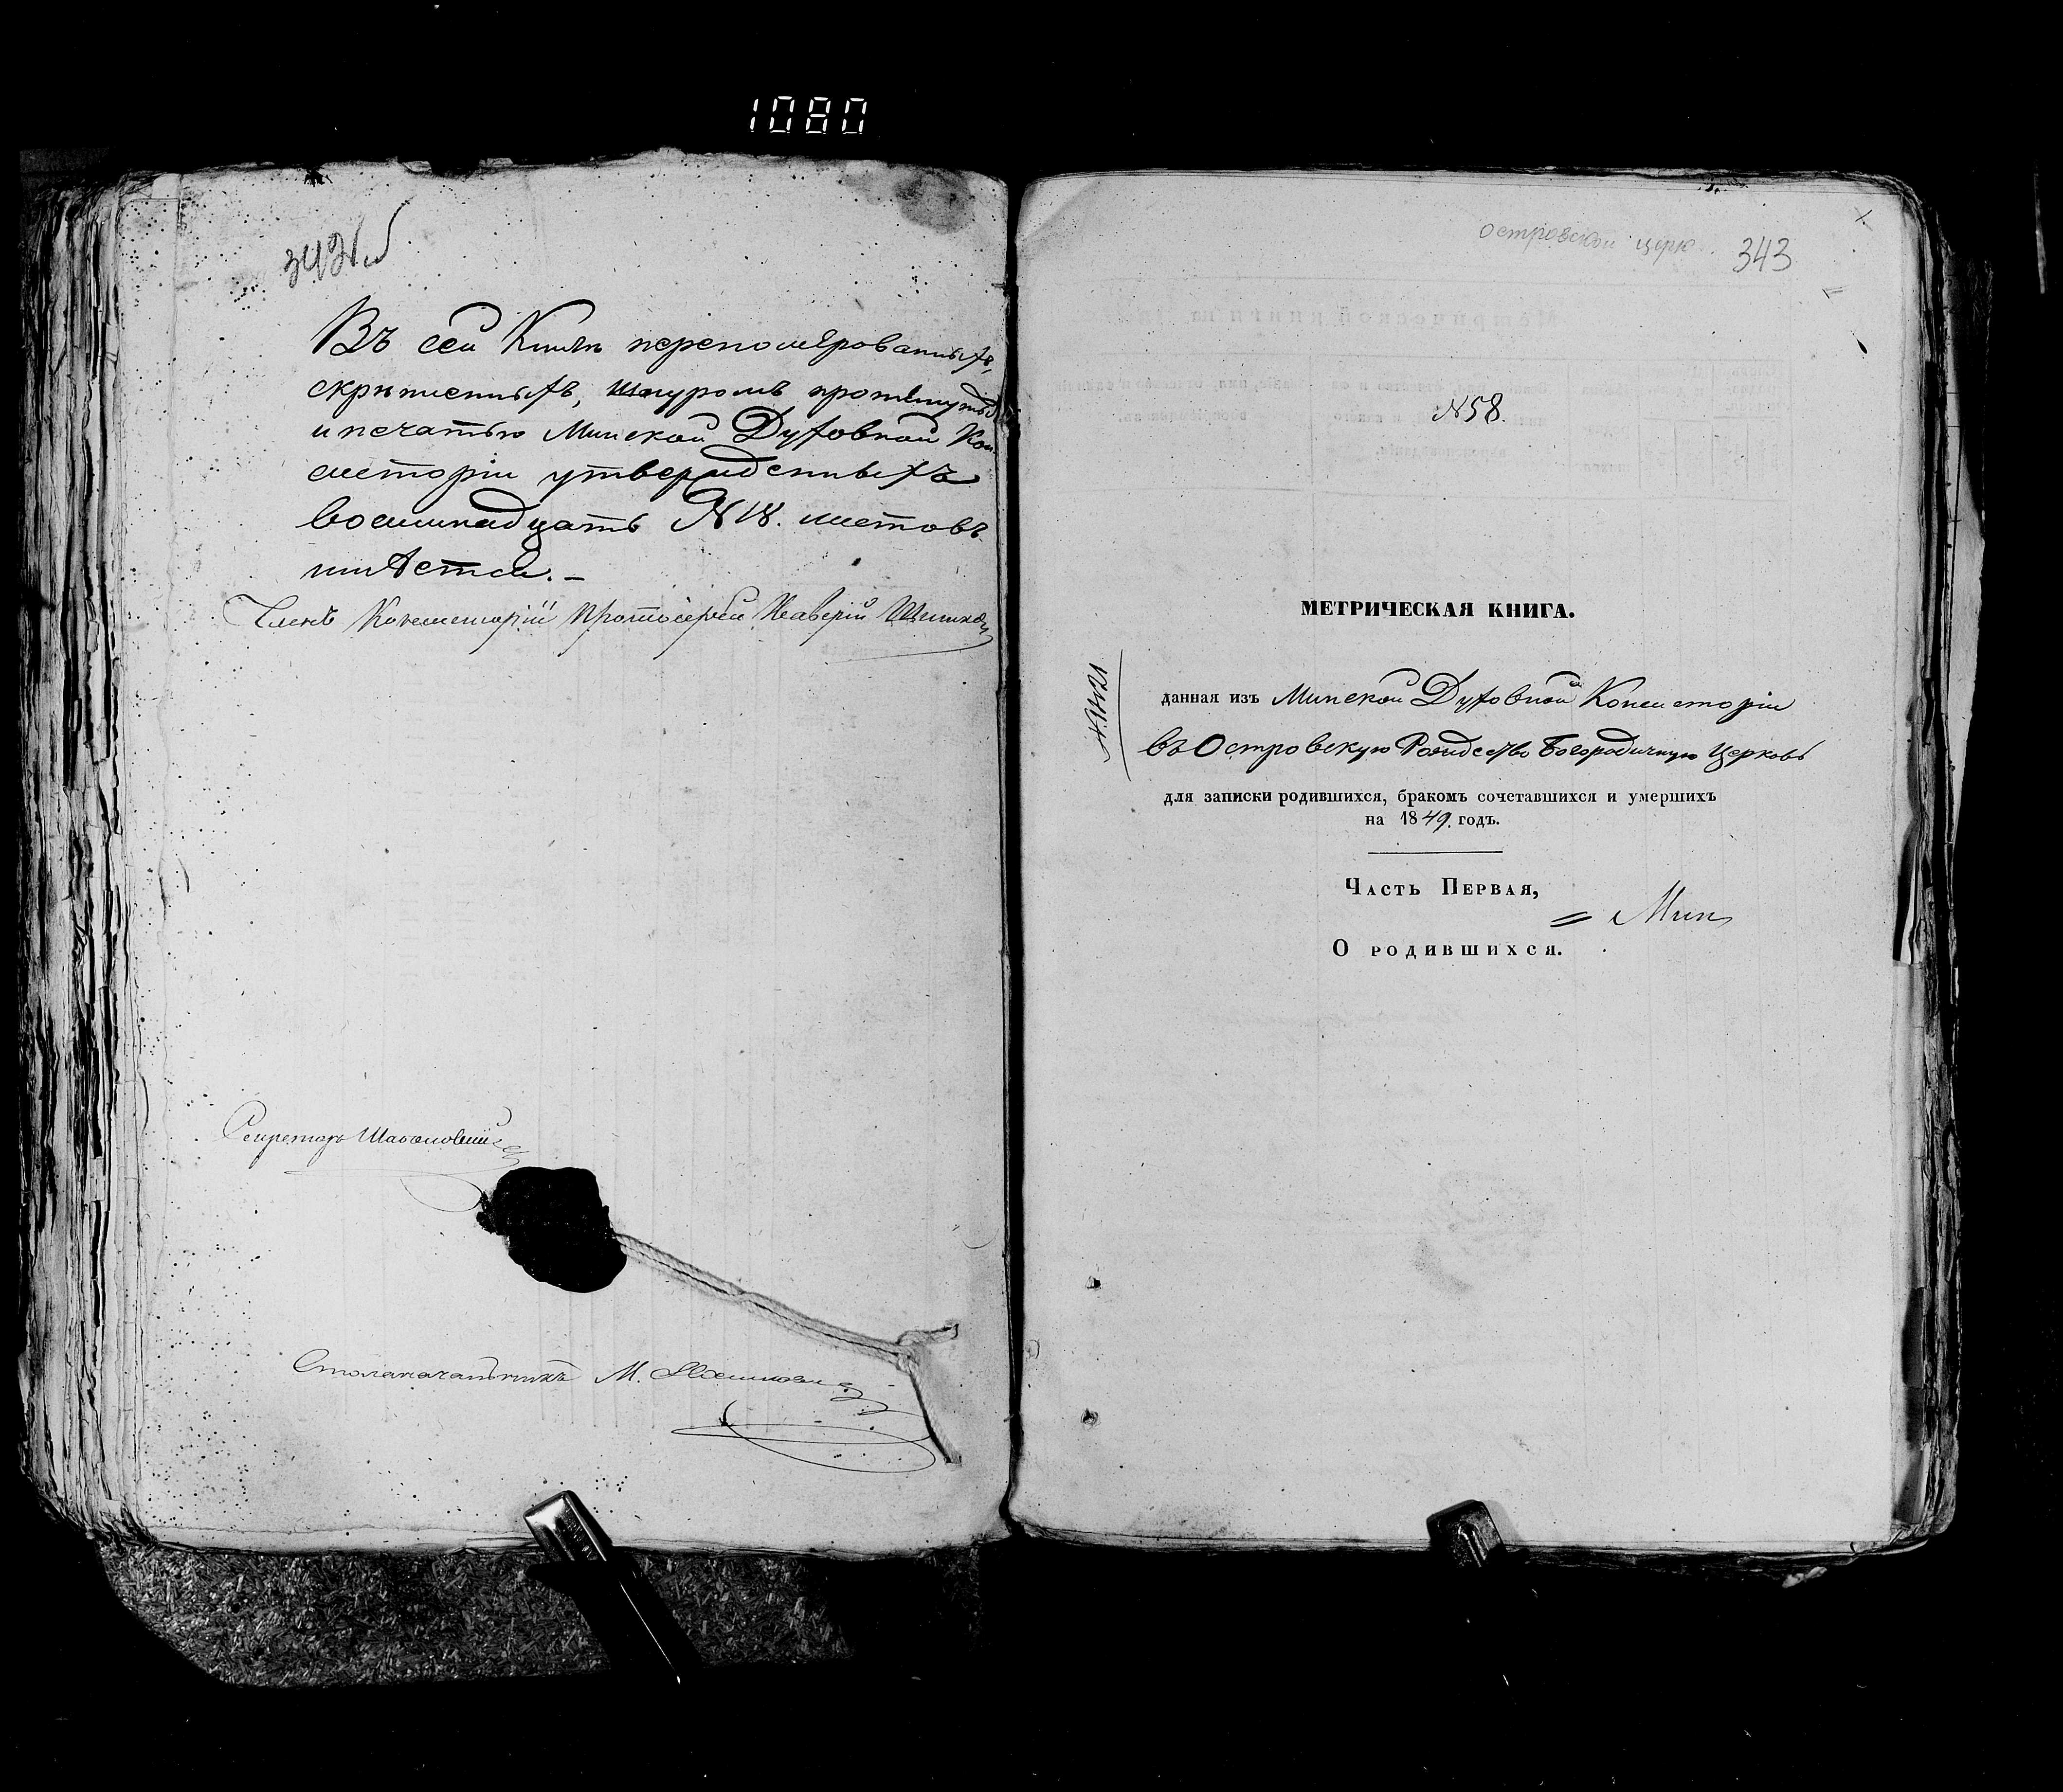 1080
342об
Въ сей Книгѣ переномерованныхъ,
скрѣпленныхъ, шнуромъ протянутыхъ
и печатью Минской Духовной Кон
систоріи утвержденныхъ
восемнадцать N 18. листовъ
имѣется. –
Членъ Консисторіи Протоіерей
Секретарь
Столоначальникъ М.
Островской церк. 343
N58.
МЕТРИЧЕСКАЯ КНИГА.
данная изъ Минской Духовной Консисторіи
въ Островскую Рождество Богородичную Церковь
для записки родившихся, бракомъ сочетавшихся и умершихъ
на 1849. годъ.
Часть Первая,
О родившихся.